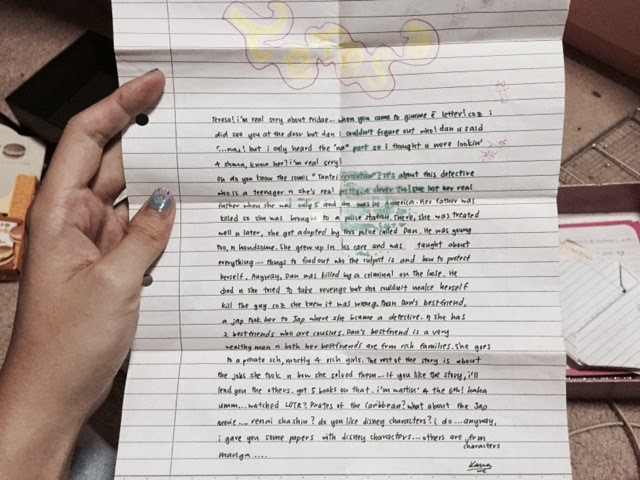 Teresa
Teresa! i'm real srry about fridae... when you came to gimme ē letter! coz i
did see you at the door but dan i couldn't figure out who! dan u said
"...na! but i only heard the "na" part so i thought u were lookin'
4 shona, knaa her! i'm real srry!
Oh do you know the comic "Tantei revolution"? it's about this detective
who is a teenager n she's real pretty n clever too! She lost her real
father when she was only 5 and she was in America. Her father was
killed so she was brought to a police station. There, she was treated
well n later, she got adopted by this police called Dan. He was young
too, n handsome. She grew up in his care and was taught about
everything.... things to find out who the culprit is and how to protect
herself. Anyway, Dan was killed by a criminal on the loose. He
died n she tried to take revenge but she couldn't make herself
kill the guy coz she knew it was wrong. Then Dan's bestfriend,
a jap took her to Jap where she became a detective. n she has
2 bestfriends who are cousins. Dan's bestfriend is a very
wealthy man n both her bestfriends are from rich families. She goes
to a private sch, mostly 4 rich girls. The rest of the story is about
the jobs she took n how she solved them... If you like the story, i'll
lend you the others. got 5 books on that. i'm waitin' 4 the 6th! haha
umm... watched LOTR? Pirates of the Caribbean? what about the Jap
movie.... renai shashin? do you like disney characters? i do... anyway,
i gave you some papers with disney characters... others are frm
manga.... characters
Kana